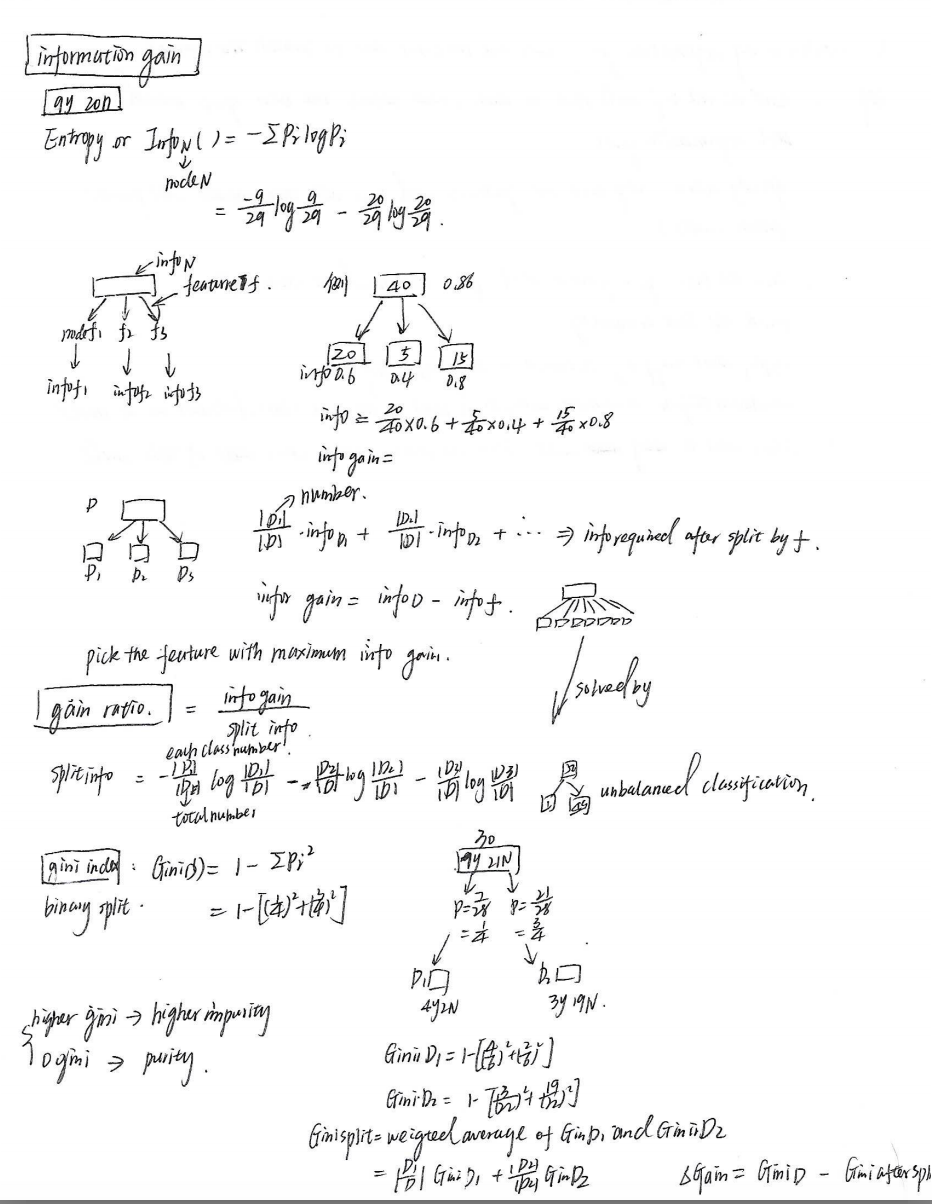 information gain
9y 20n
Entropy or Info N ( ) = -Σ Pi log Pi
node N
= -9/29 log 9/29 - 20/29 log 20/29.
info N
feature f.
node f1 f2 f3
info f1 info f2 info f3
例 40 0.86
20 5 15
info 0.6 0.4 0.8
info = 20/40 × 0.6 + 5/40 × 0.4 + 15/40 × 0.8
info gain =
number.
D
D1 D2 D3
|D1|/|D| · info D1 + |D2|/|D| · info D2 + ... ⇒ info required after split by f.
infor gain = info D - info f.
pick the feature with maximum info gain.
solved by
gain ratio. = info gain / split info.
each class number.
split info = -|D1|/|D| log |D1|/|D| - |D2|/|D| log |D2|/|D| - |D3|/|D| log |D3|/|D|
total number
unbalanced classification.
gini index : Gini(D) = 1 - ΣPi²
binary split. = 1-[(1/4)²+(3/4)²]
30
9y 21N
P=7/28 P=21/28
=1/4 =3/4
D1 D2
4y2N 3y 19N.
higher gini → higher impurity
0 gini → purity.
Gini D1 = 1-[(4/6)²+(2/6)²]
Gini D2 = 1-[(3/22)²+(19/22)²]
Gini split = weigted average of Gin D1 and Gini D2
= |D1|/|D| Gini D1 + |D2|/|D| Gin D2
Δ Gain = Gini D - Gini after spl